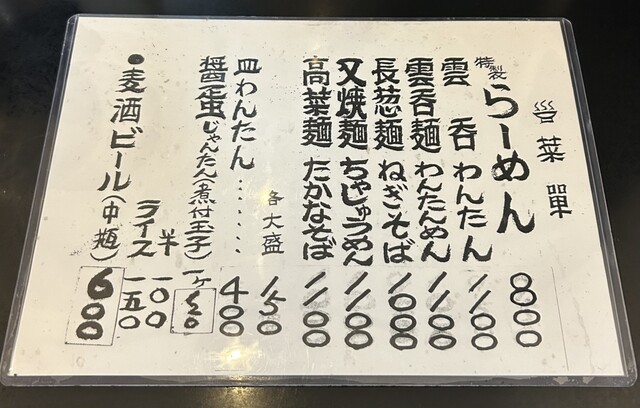 菜單
特製 らーめん 800
雲呑 わんたん 1100
雲呑麺 わんたんめん 1100
長葱麺 ねぎそば 1000
叉焼麺 ちゃじゅうめん 1100
高菜麺 たかなそば 1100
各大盛 150
皿わんたん……… 400
醤蛋 じゃんたん(煮付玉子) 一ケ
半 一〇〇
ライス 一五〇
●麦酒ビール(中瓶) 600